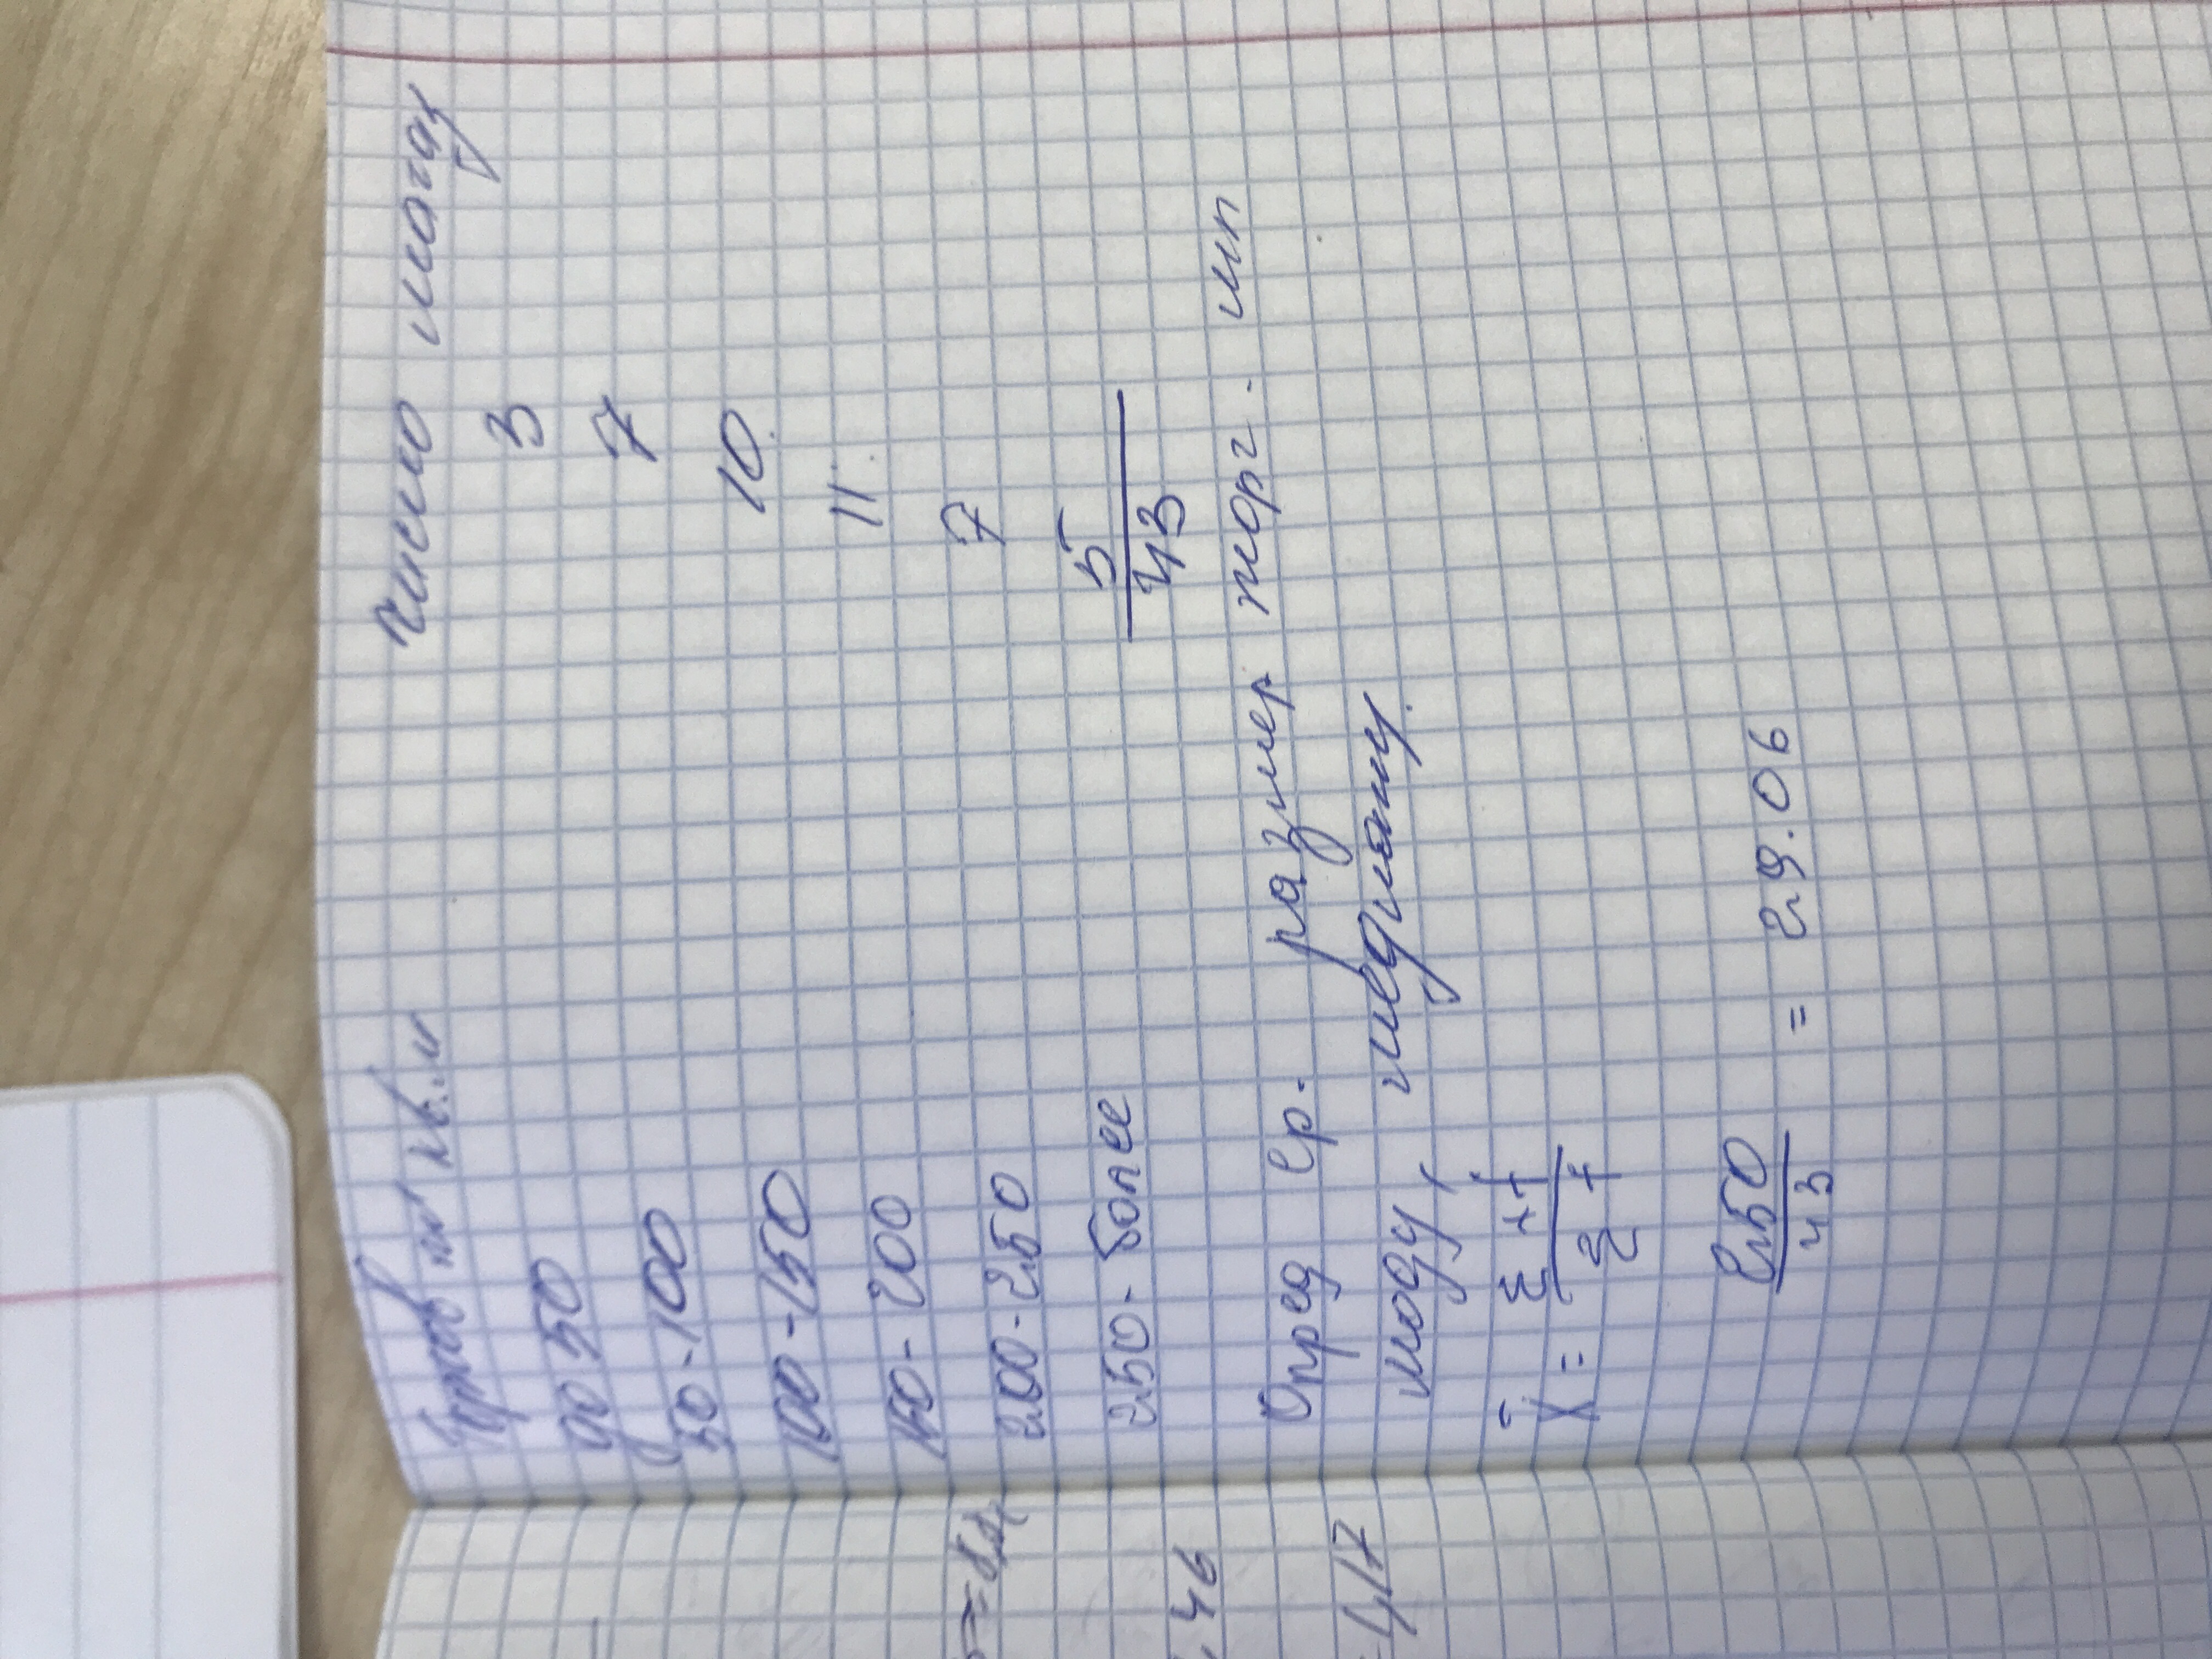 Торгов. пл кв.м число магаз
до 50 3
50-100 7
100-150 10
150-200 11
200-250 7
250-более 5
43
Опред ср. размер торг. пл
моду, медиану.
x̄ = Σxf / Σf
2150 / 43 = 29.06
46
= 4,17